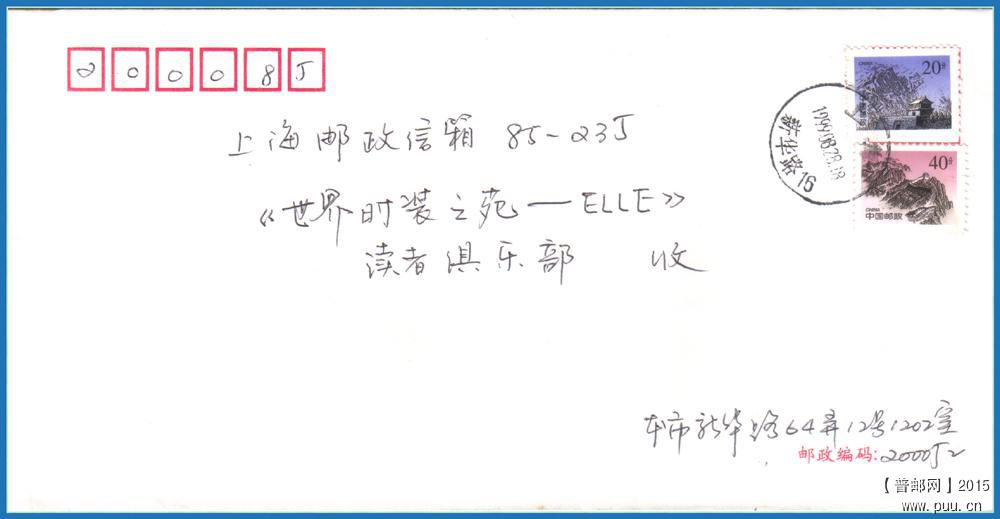 200085
20分
CHINA
1999.08.28.18
新华路 16
40分
CHINA
中国邮政
上海邮政信箱 85-235
《世界时装之苑—ELLE》
读者俱乐部 收
本市新华路64弄12号1202室
邮政编码:200052
【普邮网】2015
www.puu.cn